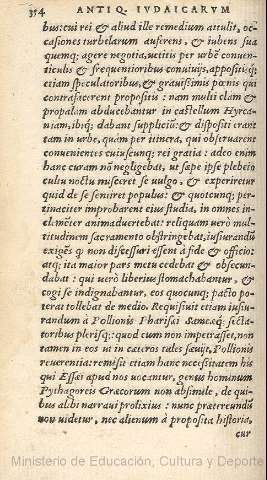 354 ANTIQ. IVDAICARVM
bus: cui rei & aliud ille remedium attulit, oc-
casiones turbelarum auferens, & iubens sua
quemq; agere negotia, uetitis per urbē conuen-
ticulis & frequentioribus conuiuijs, appositisq;
etiam speculatoribus, & grauissimis pœnis qui
contrafacerent propositis: nam multi clam &
propalam abducebantur in castellum Hyrca-
nium, ibiq; dabant suppliciū: & dispositi erant
tam in urbe, quàm per itinera, qui obseruarent
conuenientes cuiuscunq; rei gratia: adeo enim
hanc curam nō negligebat, ut sæpe ipse plebeio
cultu noctu misceret se uulgo, & experiretur
quid de se sentiret populus: & quotcunq; per-
tinaciter improbarent eius studia, in omnes in
clemēter animaduertebat: reliquam uerò mul-
titudinem sacramento obstringebat, iusiurandū
exigēs q̃ non discessuri essent à fide & officio:
atq; ita maior pars metu cedebat & obsecun-
dabat: qui uerò liberius stomachabantur, &
cogi se indignabantur, eos quocunq; pacto po-
terat tollebat de medio. Requisiuit etiam iusiu-
randum à Pollionis Pharisæi Sameæq; secta-
toribus plerisq;: quod cum non impetrasset, non
tamen in eos ut in cæteros tales sæuijt, Pollionis
reuerentia: remisit etiam hanc necessitatem his
qui Essæi apud nos uocantur, genus hominum
Pythagoreis Græcorum non absimile, de qui-
bus alibi narraui prolixius: nunc prætereundū
non uidetur, nec alienum à proposita historia,
cur
Ministerio de Educación, Cultura y Deporte